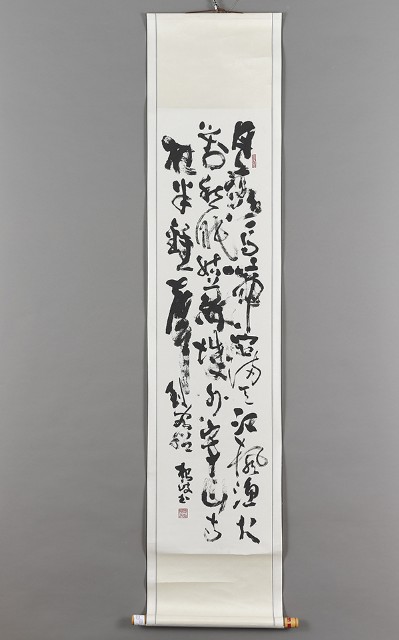 月落烏啼霜满天江楓漁火
對愁眠姑蘇城外寒山寺
夜半鐘聲到客船